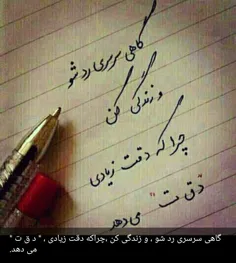 گاهی سرسری رد شو
و زندگی کن
چرا که دقت زیادی
"دق ت"
می دهد
گاهی سرسری رد شو ، و زندگی کن ،چراکه دقت زیادی ، " د ق ت "
می دهد.